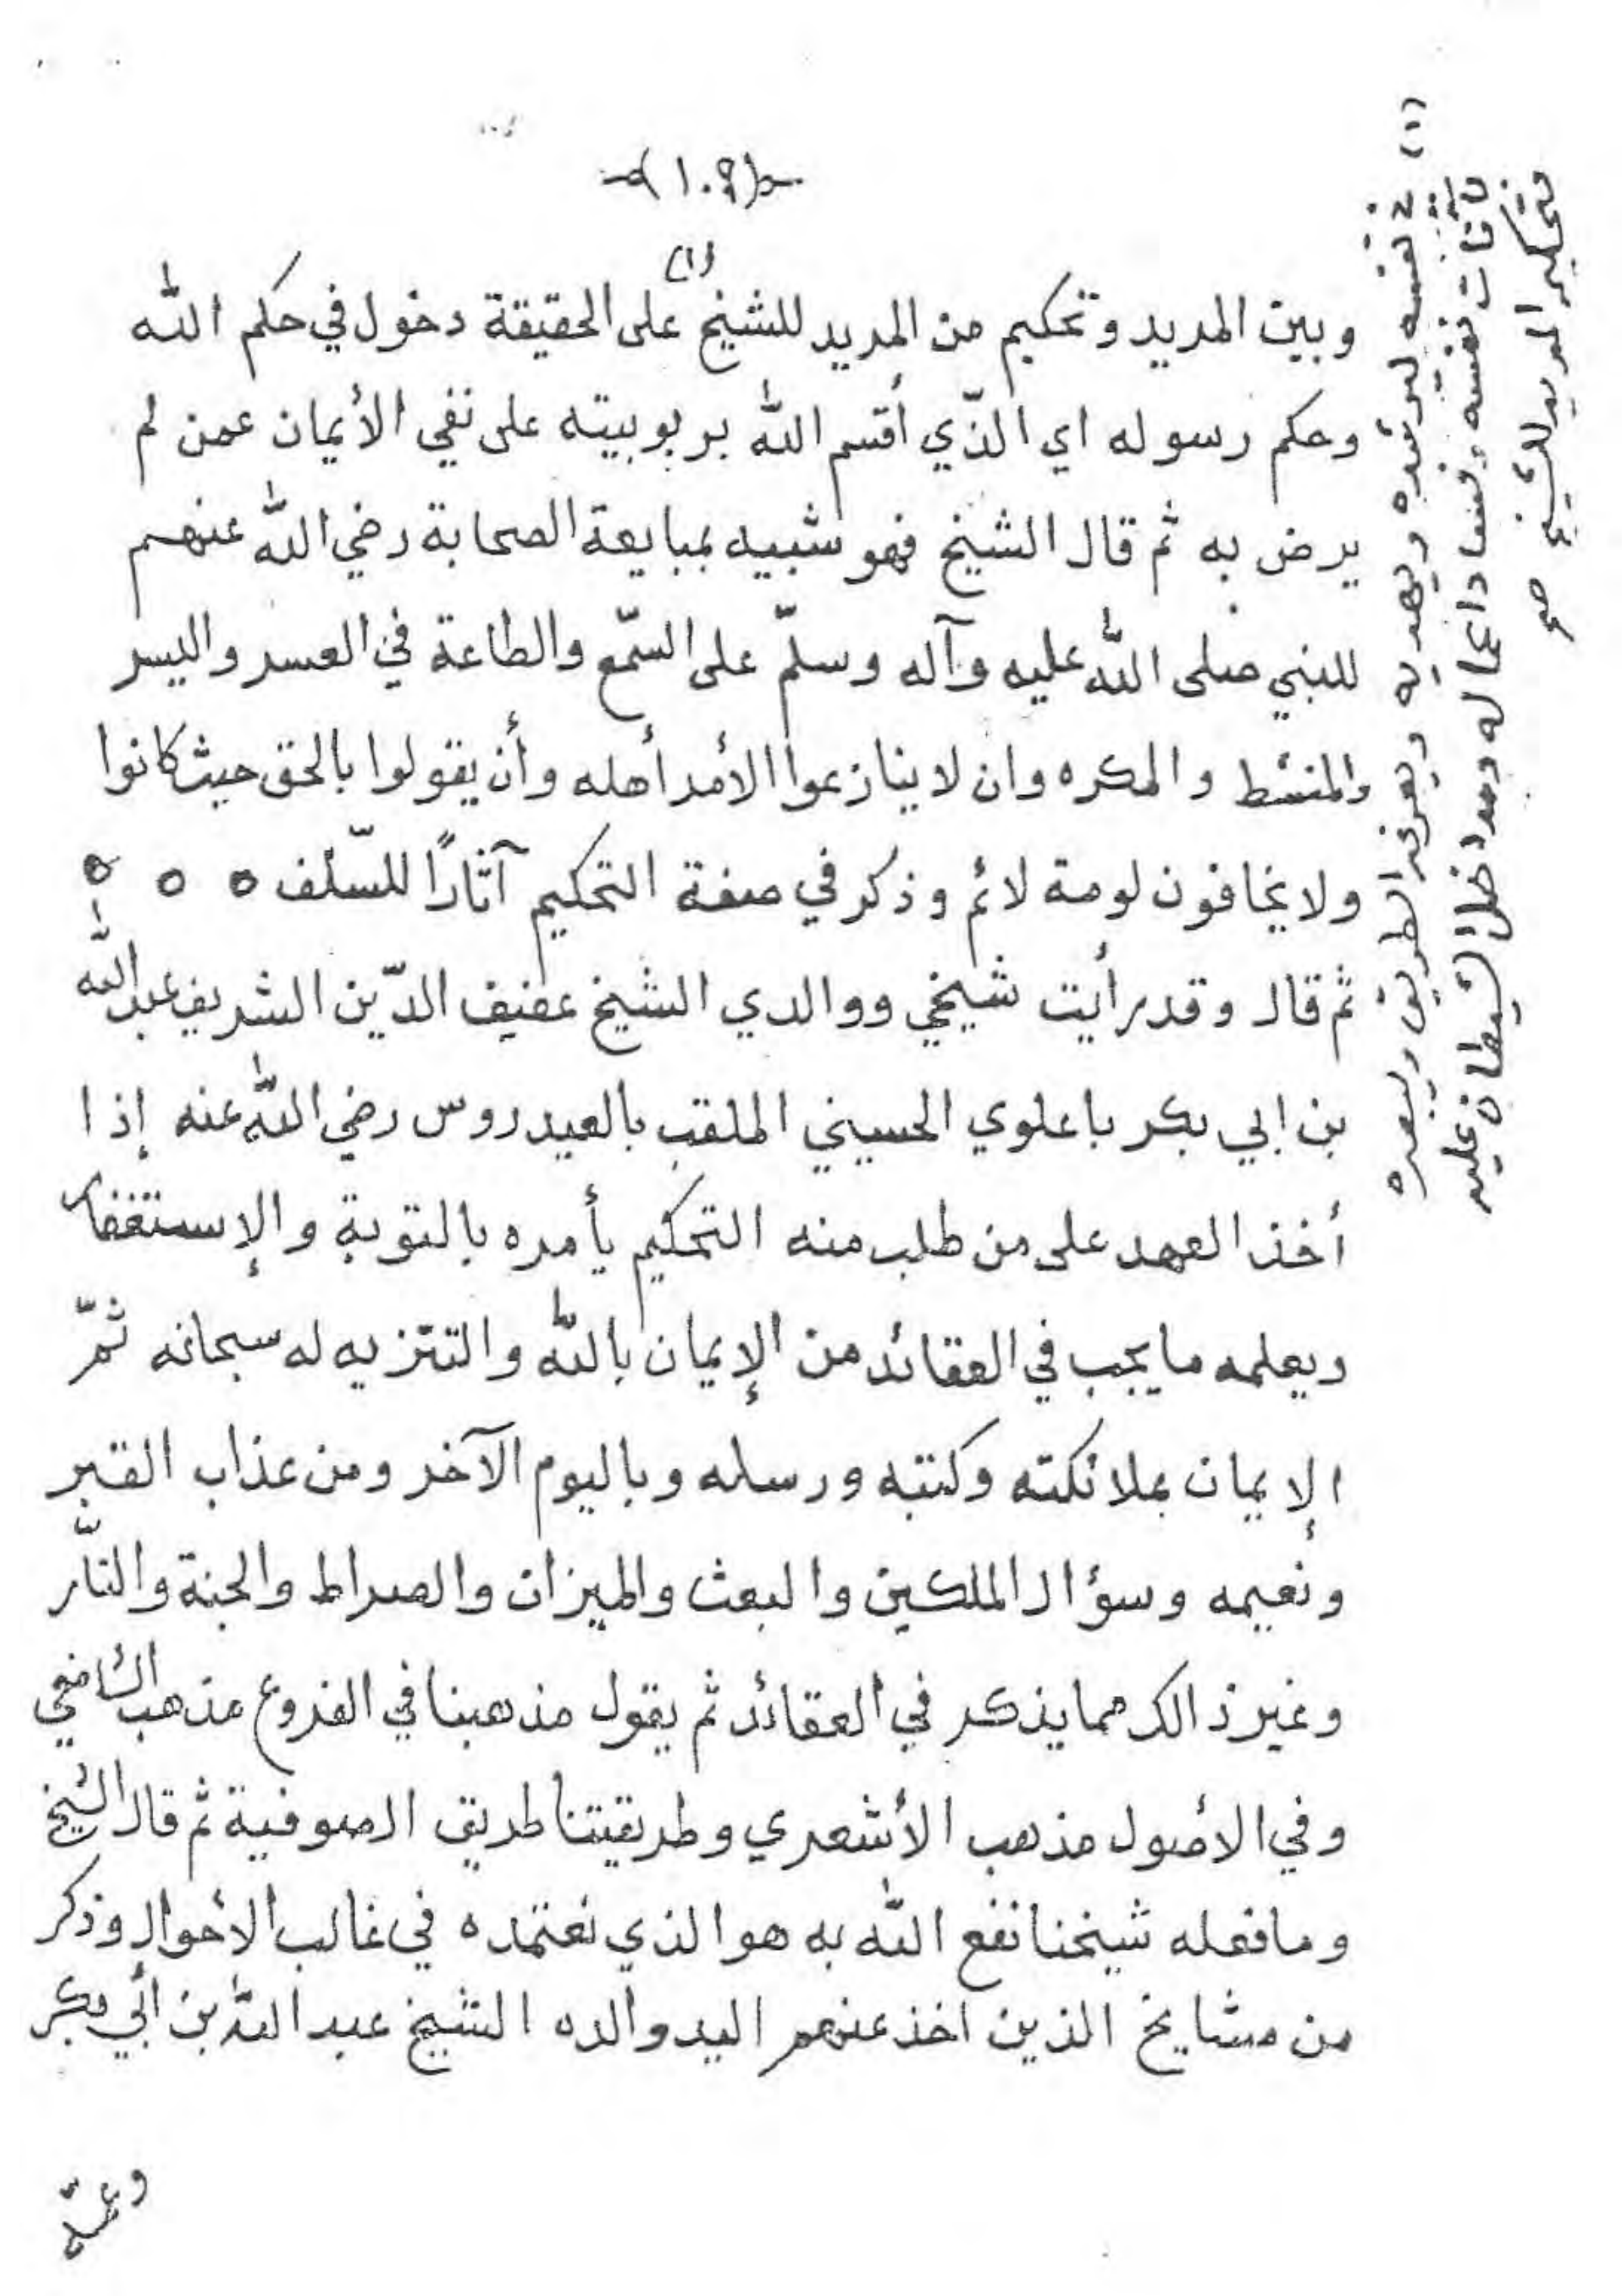 -(١٠٩)-
وبين المريد وتحكيم من المريد للشيخ (١) على الحقيقة دخول في حكم الله
وحكم رسوله اي الذّي أقسم الله بربوبيته على نفي الأيمان عمن لم
يرض به ثم قال الشيخ فهو شبيه بمبايعة الصحابة رضي الله عنهم
للنبي صلى الله عليه وآله وسلّم على السّمع والطاعة في العسر واليسر
والمنشط والمكره وان لا ينازعوا الأمر أهله وأن يقولوا بالحق حيث كانوا
ولا يخافون لومة لائم وذكر في صفة التحكيم آثارًا للسّلف ٥ ٥ ٥
ثم قال وقد رأيت شيخي ووالدي الشيخ عفيف الدّين الشريف عبد الله
بن ابي بكر باعلوي الحسيني الملقب بالعيدروس رضي الله عنه إذا
أخذ العهد على من طلب منه التحكيم يأمره بالتوبة والإستغفار
ويعلمه ما يجب في العقائد من الإيمان بالله والتنزيه له سبحانه ثمّ
الإيمان بملائكته وكتبه ورسله وباليوم الآخر ومن عذاب القبر
ونعيمه وسؤال الملكين والبعث والميزان والصراط والجنة والنّار
وغير ذالك مما يذكر في العقائد ثم يقول مذهبنا في الفروع مذهب الشافعي
وفي الأصول مذهب الأشعري وطريقتنا طريق الصوفية ثم قال الشيخ
وما فعله شيخنا نفع الله به هو الذي نعتمده في غالب الأحوال وذكر
من مشايخ الذين اخذ عنهم اليد والده الشيخ عبد الله بن أبي بكر
وعمّه
(١) في نفسه ليرشده ويهديه ويعرفه الطريق ويبصره
بآفات نفسه وفساد اعماله ومداخل الشيطان عليه
فتحكيم المريد للشيخ صح